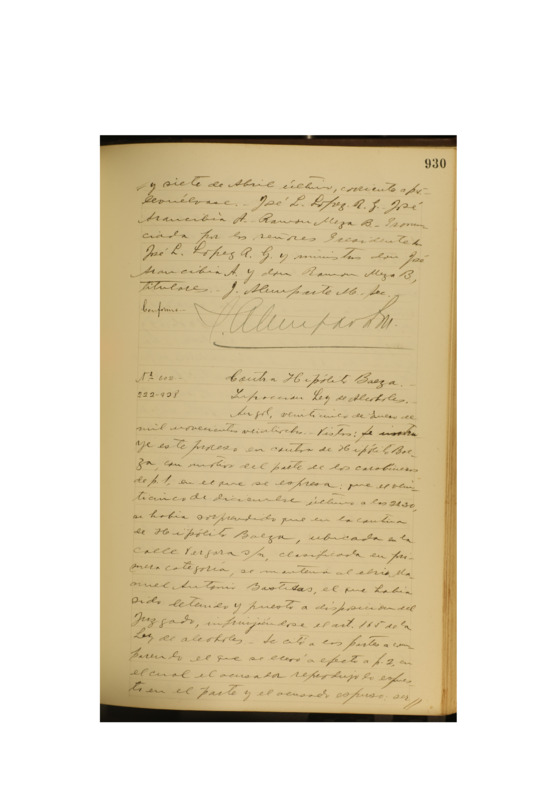 930
y siete de Abril último, corriente a fs.
devuélvase. - José L. López A. G. José
Arancibia A. Ramon Meza B. Pronun
ciada por los señores Presidente don
José L. López A. G. y ministros don José
Arancibia A. y don Ramon Meza B,
titulares. - J. Alempart M. Sec.
Conforme.
Nº
222-228
Contra Hipólito Baeza. -
Infraccion Ley de Alcoholes.
Angol, veintiuno de Enero de
mil novecientos veintiocho. - Vistos; se instru
ye este proceso en contra de Hipólito Bae-
za, con motivo del parte de los carabineros
de f. 1, en el que se expresa: que el vein
ticinco de diciembre último a las 21.30,
se habia sorprendido que en la cantina
de Hipólito Baeza, ubicada en la
calle Vergara s/n, clasificada en pri-
mera categoria, se mantenia al ebrio Ma-
nuel Antonio Bastias, el que habia
sido detenido y puesto a disposicion del
Juzgado, infrinjiéndose el art. 165 de la
Ley de alcoholes. - Se citó a las partes a com
parendo el que se llevó a efecto a f. 2, en
el cual el acusador reprodujo lo expues
to en el parte y el acusado expuso: ser